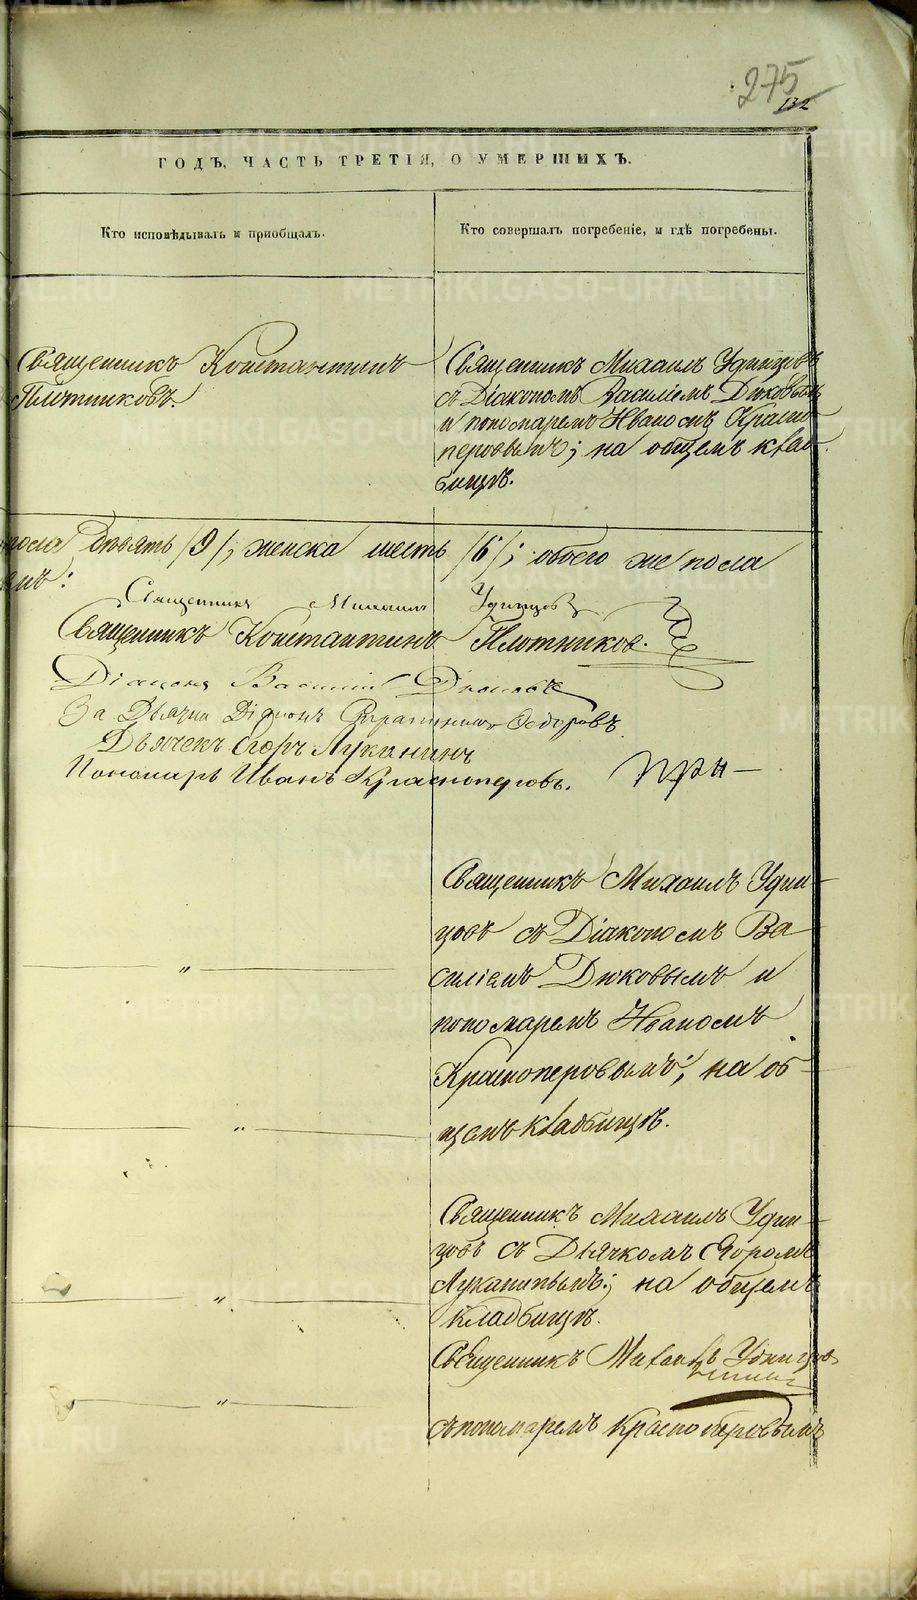 275
132
ГОДЪ, ЧАСТЬ ТРЕТІЯ, О УМЕРШИХЪ.
Кто исповѣдывалъ и пріобщалъ.
Кто совершалъ погребеніе, и гдѣ погребены.
Священникъ Константинъ
Плотниковъ.
Священникъ Михаилъ Удинцовъ
съ Діакономъ Василіемъ Дюковымъ
и пономаремъ Иваномъ Красно
перовымъ; на общемъ клад
бищѣ.
пола девять /9/, женска шесть /6/; обоего же пола
Священникъ Михаилъ Удинцовъ
Священникъ Константинъ Плотниковъ.
Діаконъ Василій Дюковъ
За Дьячка Діаконъ Ѳедоровъ
Дьячекъ Егоръ Луканинъ
Пономарь Иванъ Красноперовъ.
Священникъ Михаилъ Удин
цовъ съ Діакономъ Ва
силіемъ Дюковымъ и
пономаремъ Иваномъ
Красноперовымъ; на об
щемъ кладбищѣ.
Священникъ Михаилъ Удин
цовъ съ Дьячкомъ Егоромъ
Луканинымъ; на общемъ
кладбищѣ.
Священникъ Михаилъ Удинцов
съ пономаремъ Красноперовымъ
METRIKI.GASO-URAL.RU